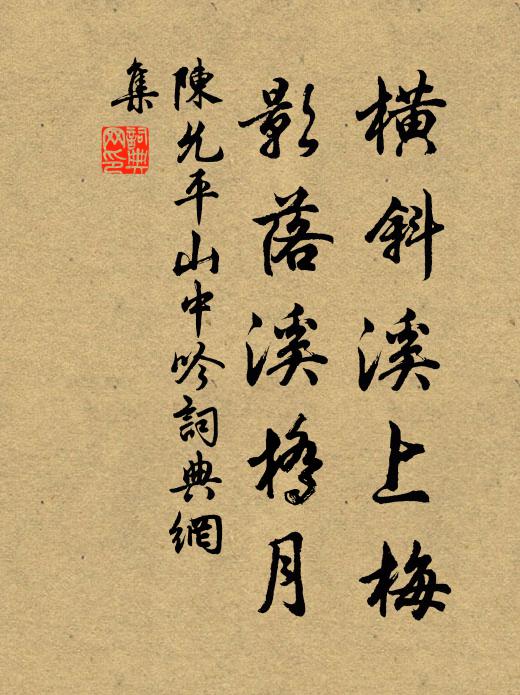 橫斜溪上梅
影落溪橋月
陳允平山中吟詞典網
集
詞典網印